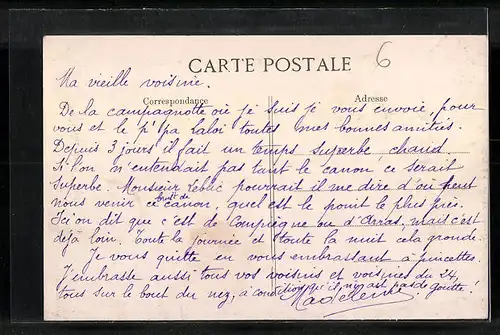 6
CARTE POSTALE
Ma vieille voisine.
Correspondance
Adresse
De la campagnotte où je suis je vous envoie, pour
vous et le p'pa Laloi toutes mes bonnes amitiés.
Depuis 3 jours il fait un temps superbe, chaud.
Si l'on n'entendait pas tant le canon ce serait
superbe. Monsieur Leblic pourrait il me dire d'où peut
nous venir ce bruit de canon, quel est le point le plus près.
Ici on dit que c'est de Compiègne ou d'Arras, mais c'est
déjà loin. Toute la journée et toute la nuit cela gronde.
Je vous quitte en vous embrassant à pincettes.
J'embrasse aussi tous vos voisins et voisines du 24,
tous sur le bout du nez, à condition qu'il n'y ait pas de goutte!
Madeleine